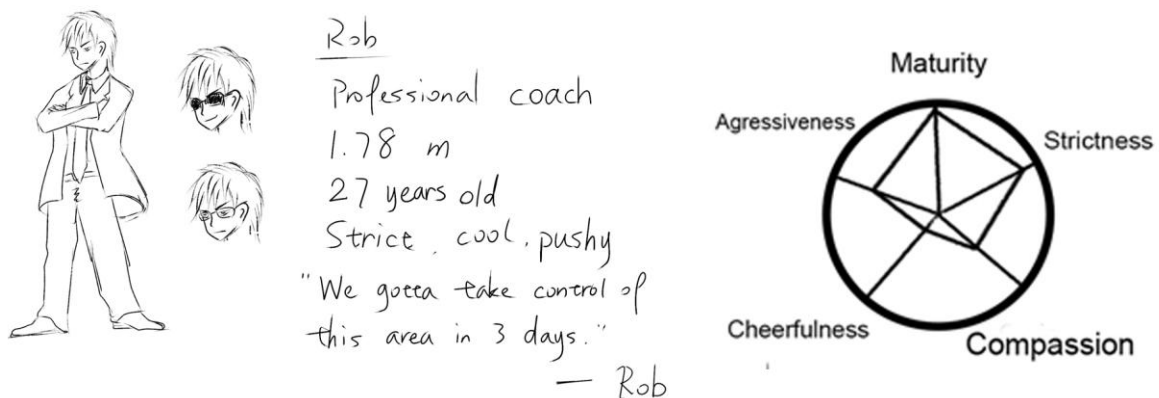 Rob
Professional coach
1.78 m
27 years old
Strict, cool, pushy
"We gotta take control of
this area in 3 days."
— Rob
Maturity
Agressiveness
Strictness
Cheerfulness
Compassion